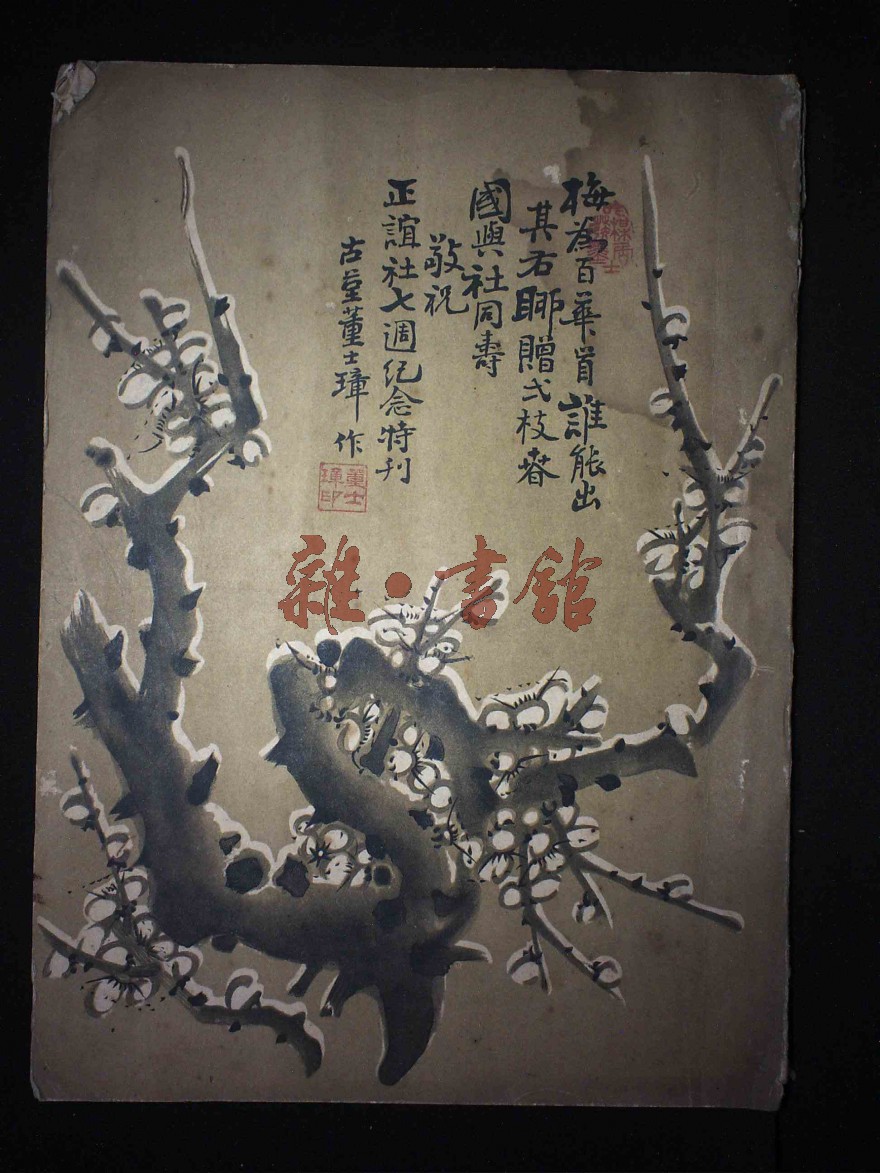 梅為百華首誰能出
其右聊贈弌枝萅
國與社同壽
敬祝
正誼社七週紀念特刊
古堇董士璋作
董士璋印
雜·書館